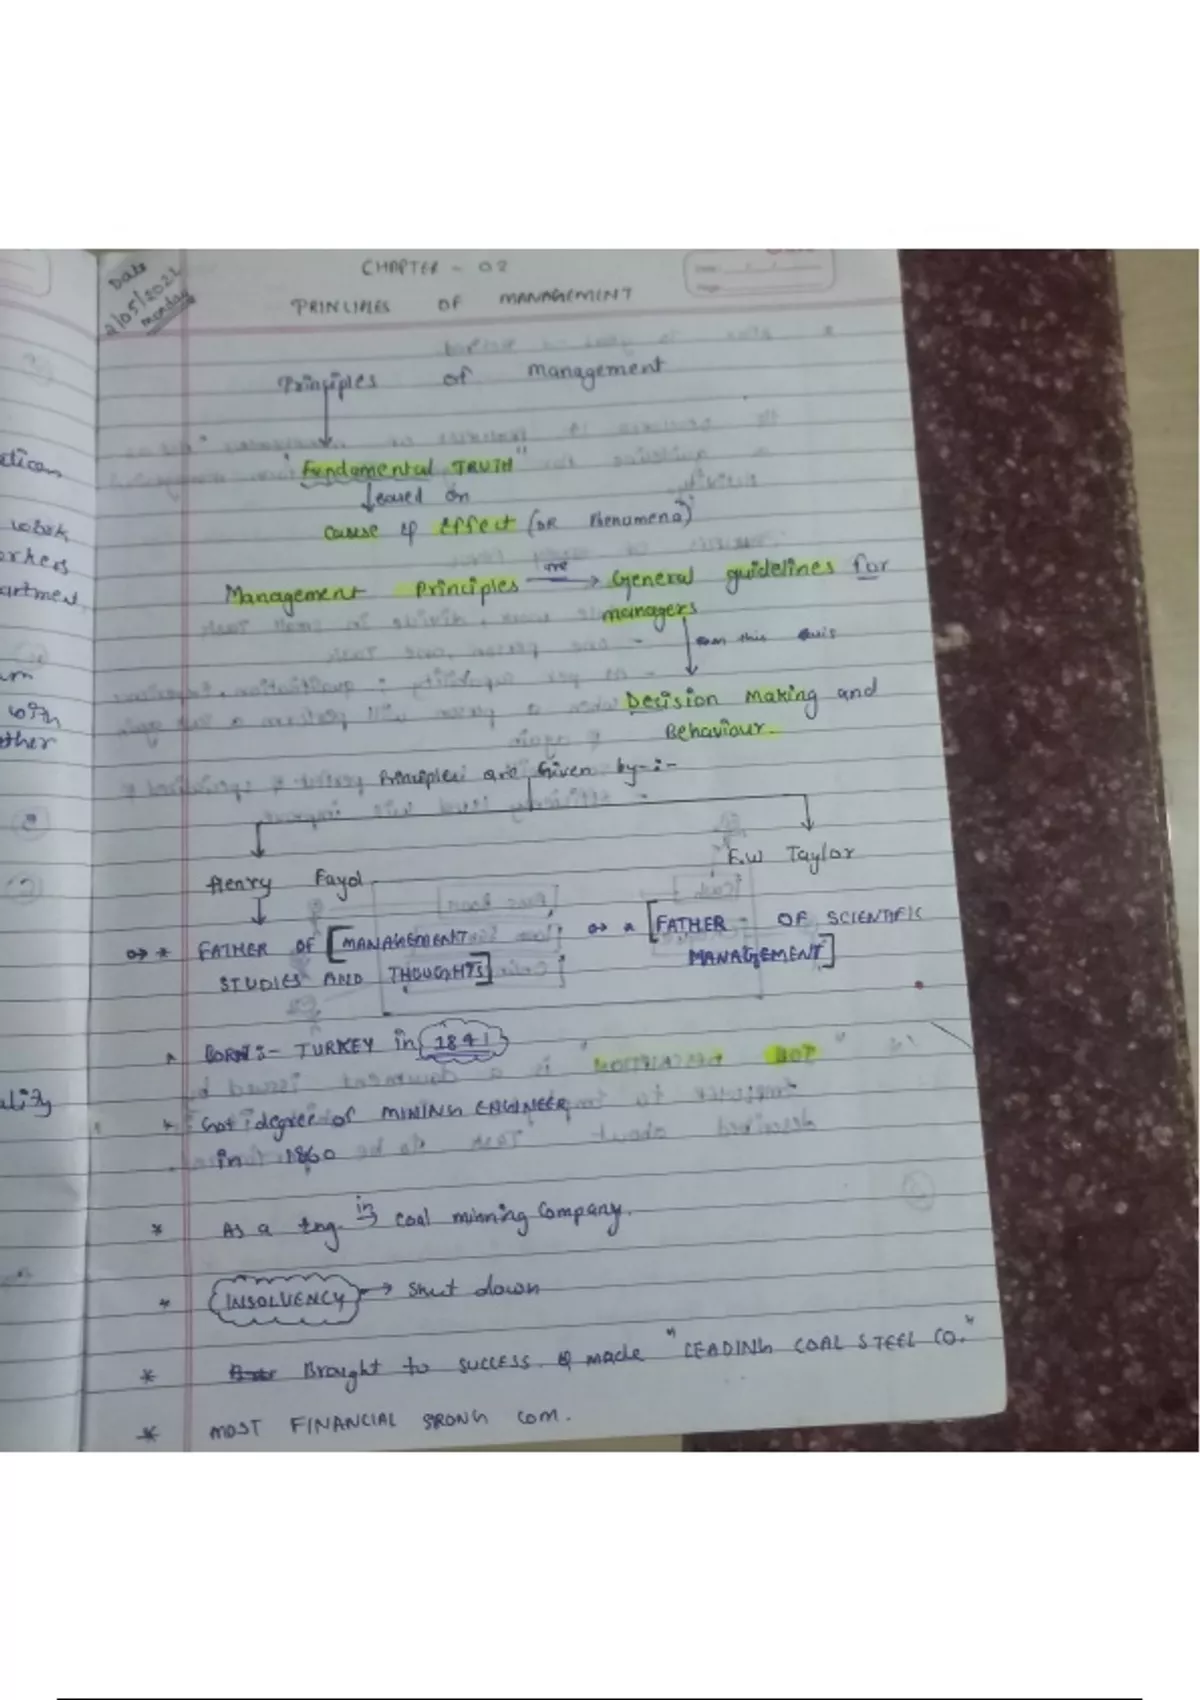 CHAPTER - 02
Date
2/05/2022
monday
PRINCIPLES OF MANAGEMENT
Principles of management
"Fundamental TRUTH"
based on
Cause & Effect (OR Phenomena)
Management Principles are → General guidelines for
managers
Decision Making and
Behaviour.
Principles are Given by-:-
Henry Fayol
F.W Taylor
* FATHER OF [MANAGEMENT
STUDIES AND THOUGHTS]
[FATHER - OF SCIENTIFIC
MANAGEMENT]
BORN:- TURKEY in 1841
* Got degree of MINING ENGINEER
in 1860
* As a Eng. in → coal minning Company.
* INSOLVENCY → Shut down
* Brought to SUCCESS & made "LEADING COAL STEEL CO."
* MOST FINANCIAL SRONG COM.
etion
work
orkers
artment
with
other
ality